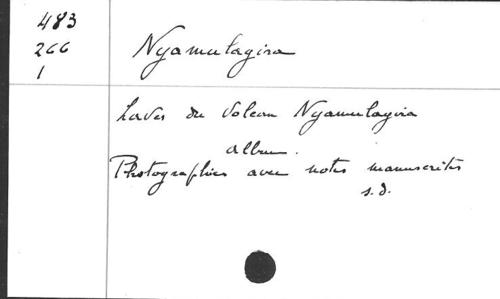 483
266
1
Nyamulagira
Laves du Volcan Nyamulagira
album.
Photographies avec notes manuscrites
s.d.